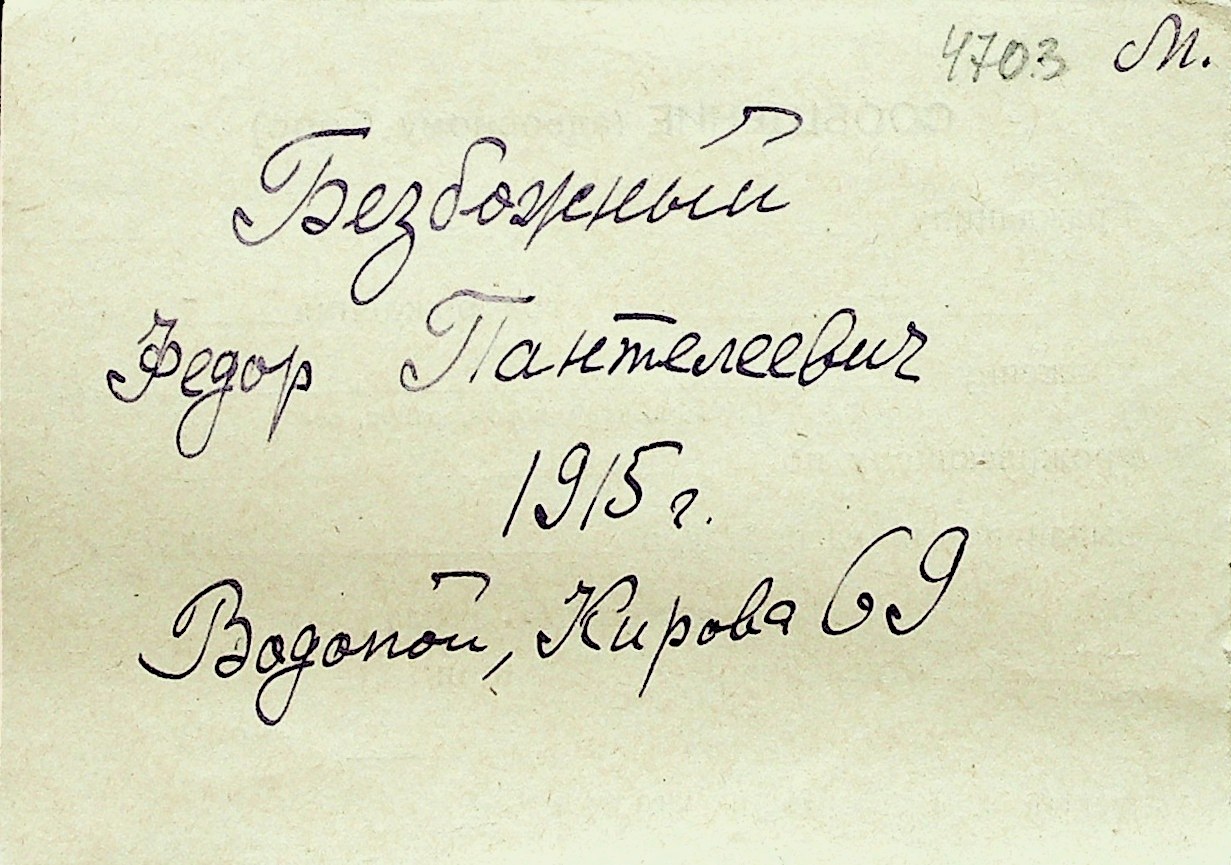 4703 М.
Безбожный
Федор Пантелеевич
1915 г.
Водопой, Кирова 69